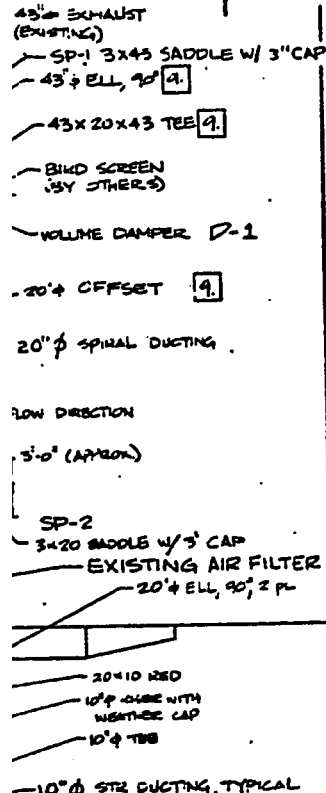 43"φ EXHAUST
(EXISTING)
SP-1 3x43 SADDLE W/ 3" CAP
43"φ ELL, 90° 9.
43x20x43 TEE 9.
BIRD SCREEN
(BY OTHERS)
VOLUME DAMPER D-1
20"φ OFFSET 9.
20"φ SPIRAL DUCTING.
FLOW DIRECTION
3'-0" (APPROX.)
SP-2
3x20 SADDLE W/ 3" CAP
EXISTING AIR FILTER
20"φ ELL, 90°, 2 PL
20x10 RED
10"φ WITH
WEATHER CAP
10"φ TEE
10"φ STR DUCTING, TYPICAL